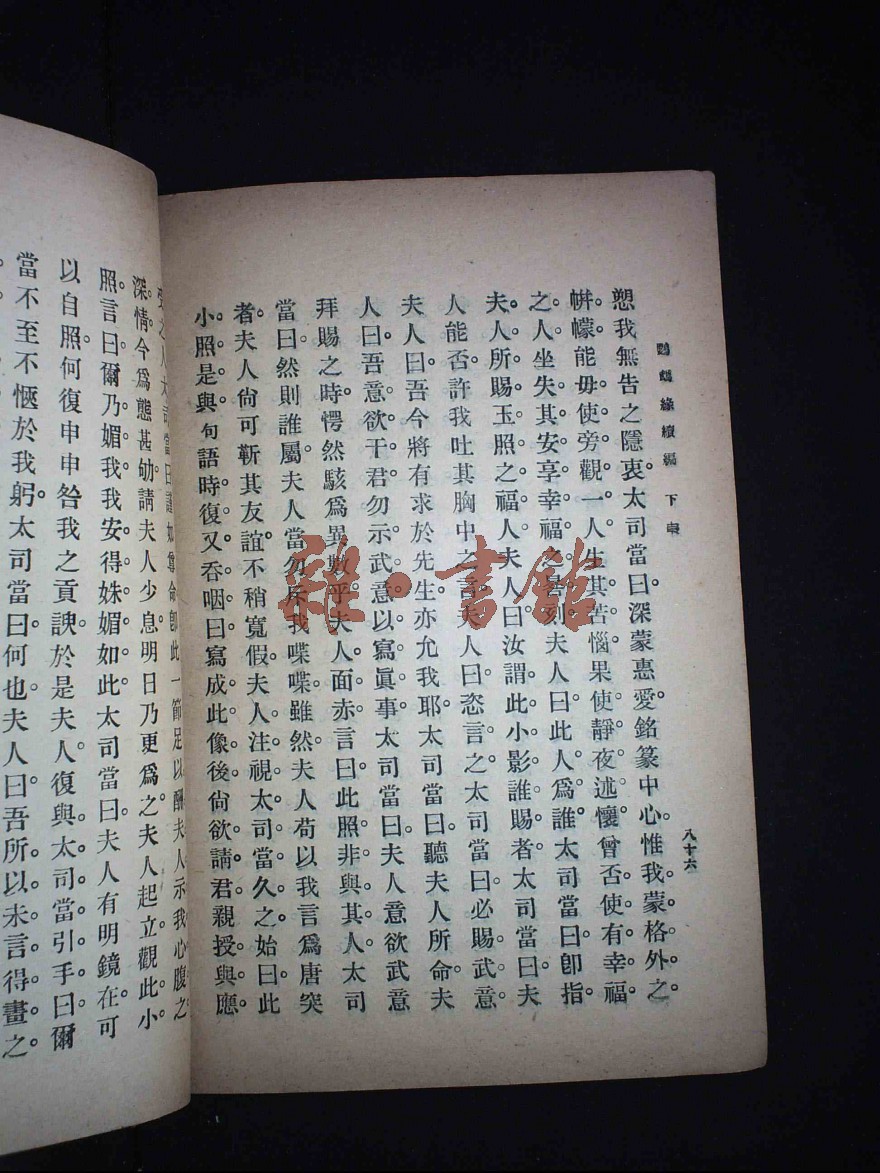 鸚鵡緣續編 下卷
八十六
愬我無告之隱衷。太司當曰。深蒙惠愛。銘篆中心。惟我蒙格外之。
帡幪。能毋使旁觀一人。生其苦惱。果使靜夜述懷。曾否使有幸福。
之人。坐失其安享幸福之晷刻。夫人曰。此人爲誰。太司當曰。卽指。
夫人所賜玉照之福人。夫人曰。汝謂此小影誰賜者。太司當曰。夫
人能否許我吐其胸中之言。夫人曰。恣言之。太司當曰。必賜武意
夫人曰。吾今將有求於先生。亦允我耶。太司當曰。聽夫人所命。夫
人曰。吾意欲干君勿示武意以寫眞事。太司當曰。夫人意欲武意
拜賜之時。愕然駭爲異數乎。夫人面赤言曰。此照非與其人。太司
當曰。然則誰屬。夫人當勿斥我喋喋。雖然。夫人苟以我言爲唐突
者。夫人尙可靳其友誼。不稍寬假。夫人注視太司當久之。始曰。此
小照是與句語時復又呑咽曰。寫成此像後。尙欲請君親授與應
受之人。太司當曰。謹如尊命。卽此一節。足以酬夫人示我心腹之。
深情。今爲態甚劬。請夫人少息。明日乃更爲之。夫人起立觀此小
照。言曰。爾乃媚我。我安得姝媚如此。太司當曰。夫人有明鏡在。可
以自照。何復申申咎我之貢諛。於是夫人復與太司當引手曰。爾
當不至不愜於我躬。太司當曰。何也。夫人曰。吾所以未言得畫之。
雜·書館